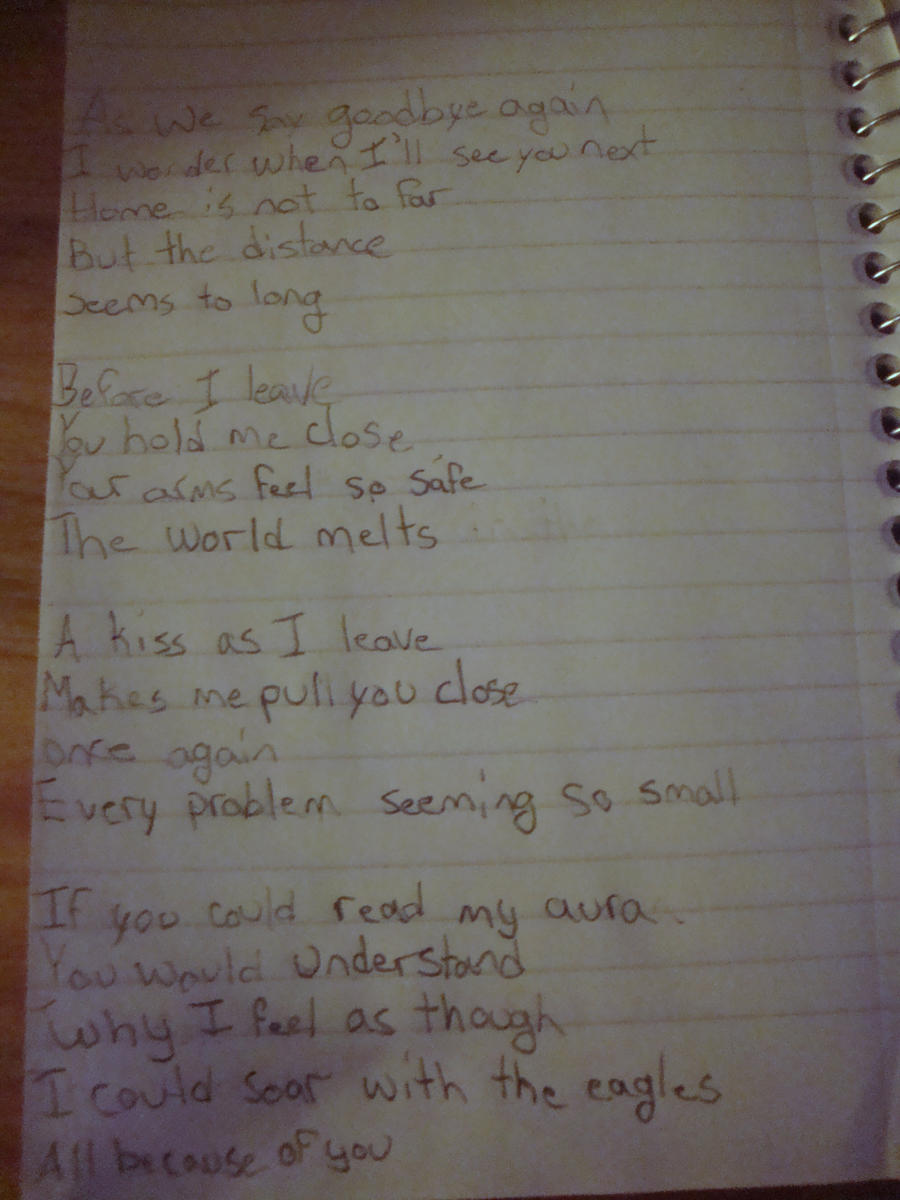 As we say goodbye again
I wonder when I'll see you next
Home is not to far
But the distance
seems to long
Before I leave
You hold me close
Your arms feel so safe
The world melts
A kiss as I leave
Makes me pull you close
once again
Every problem seeming so small
If you could read my aura.
You would understand
why I feel as though
I could soar with the eagles
All because of you